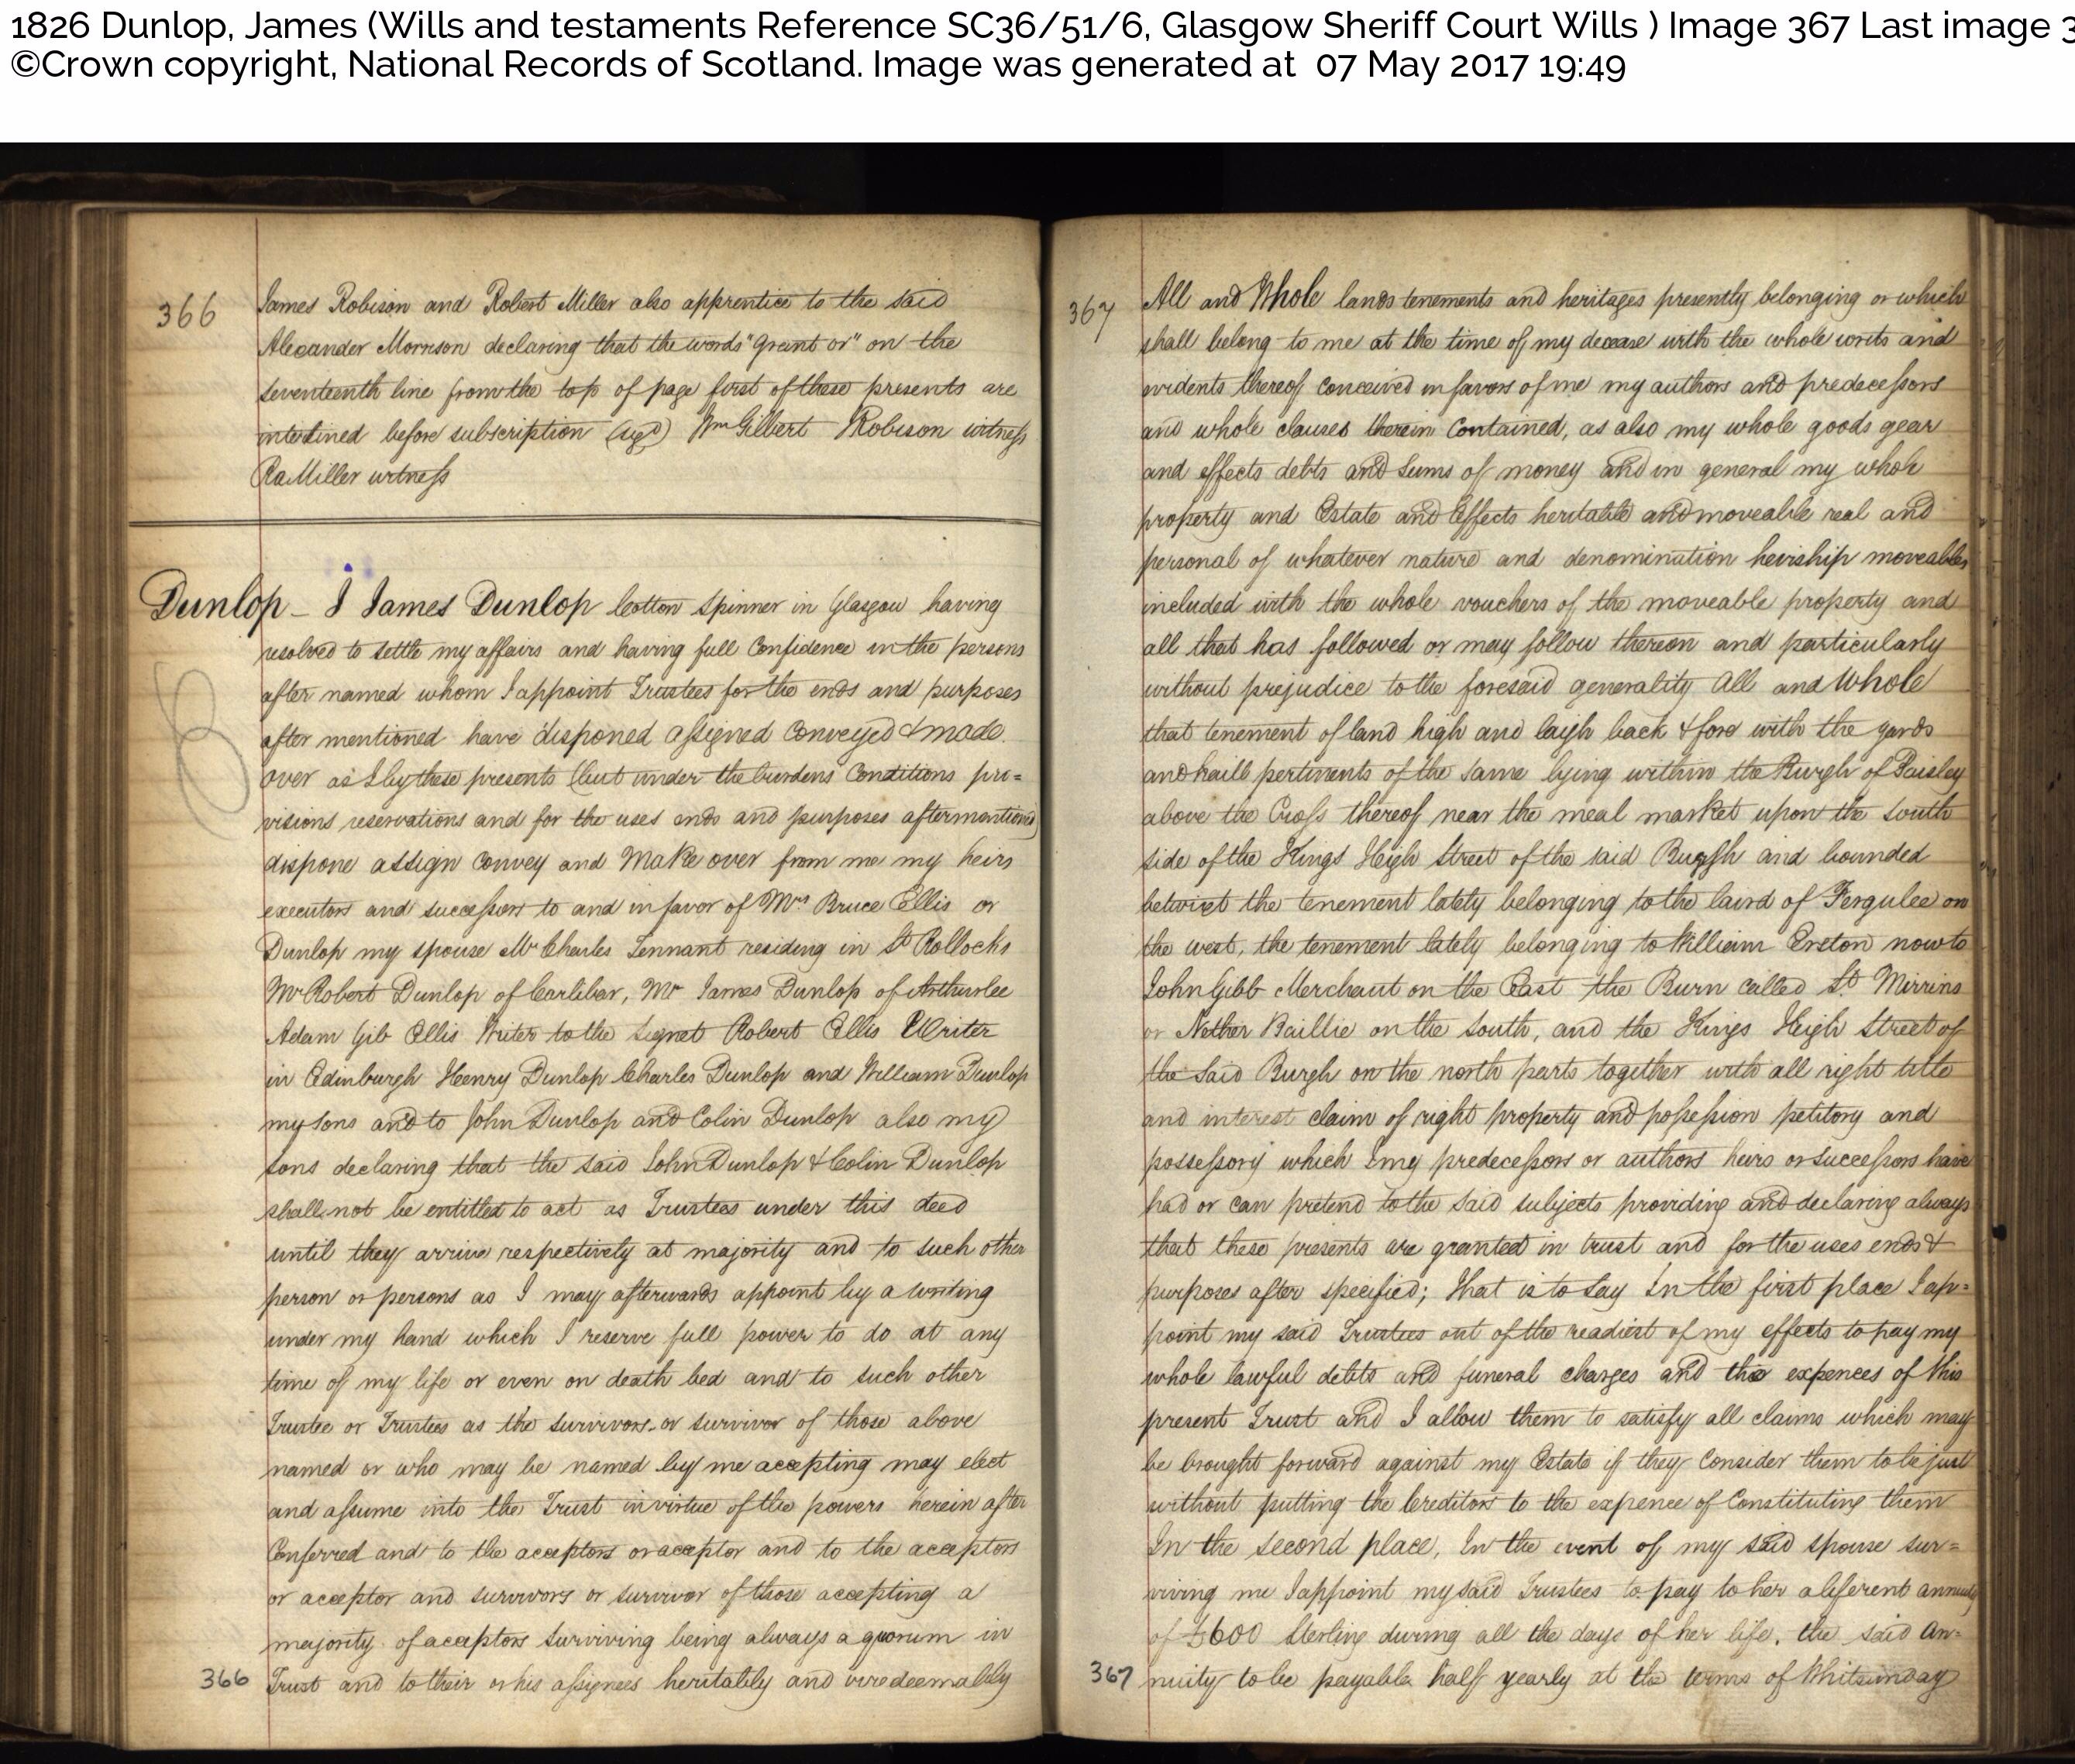 1826 Dunlop, James (Wills and testaments Reference SC36/51/6, Glasgow Sheriff Court Wills ) Image 367 Last image 3
©Crown copyright, National Records of Scotland. Image was generated at 07 May 2017 19:49
366
James Robison and Robert Miller also apprentice to the said
Alexander Morrison declaring that the words "grant or" on the
seventeenth line from the top of page first of these presents are
interlined before subscription (sigd) Wm Gilbert Robison witness
Ro Miller witness
Dunlop - I James Dunlop Cotton Spinner in Glasgow having
resolved to settle my affairs and having full Confidence in the persons
after named whom I appoint Trustees for the ends and purposes
after mentioned have disponed assigned Conveyed & made
over as I by these presents (but under the burdens Conditions pro=
visions reservations and for the uses ends and purposes aftermentioned)
dispone assign Convey and Make over from me my heirs
executors and successors to and in favor of Mrs Bruce Ellis or
Dunlop my spouse Mr Charles Tennant residing in St Rollocks
Mr Robert Dunlop of Carlibar, Mr James Dunlop of Arthurlee
Adam Gib Ellis Writer to the Signet Robert Ellis Writer
in Edinburgh Henry Dunlop Charles Dunlop and William Dunlop
my sons and to John Dunlop and Colin Dunlop also my
sons declaring that the said John Dunlop & Colin Dunlop
shall not be entitled to act as Trustees under this deed
until they arrive respectively at majority and to such other
person or persons as I may afterwards appoint by a writing
under my hand which I reserve full power to do at any
time of my life or even on death bed and to such other
Trustee or Trustees as the survivors or survivor of those above
named or who may be named by me accepting may elect
and assume into the Trust in virtue of the powers herein after
Conferred and to the acceptors or acceptor and to the acceptors
or acceptor and survivors or survivor of those accepting a
majority of acceptors surviving being always a quorum in
366 Trust and to their or his assignees heritably and irredeemably
367
All and Whole lands tenements and heritages presently belonging or which
shall belong to me at the time of my decease with the whole writs and
evidents thereof conceived in favors of me my authors and predecessors
and whole clauses therein Contained, as also my whole goods gear
and effects debts and sums of money and in general my whole
property and Estate and Effects heritable and moveable real and
personal of whatever nature and denomination heirship moveables
included with the whole vouchers of the moveable property and
all that has followed or may follow thereon and particularly
without prejudice to the foresaid generality All and Whole
that tenement of land high and laigh back & fore with the yards
and haill pertinents of the same lying within the Burgh of Paisley
above the Cross thereof near the meal market upon the south
side of the Kings Heigh Street of the said Burgh and bounded
betwixt the tenement lately belonging to the laird of Fergulee on
the west, the tenement lately belonging to William Greton now to
John Gibb Merchant on the East the Burn called St Mirrins
or Nether Baillie on the South, and the Kings Heigh Street of
the said Burgh on the north parts together with all right title
and interest claim of right property and possession petitory and
possessory which I my predecessors or authors heirs or successors have
had or can pretend to the said subjects providing and declaring always
that these presents are granted in trust and for the uses ends &
purposes after specified; that is to say In the first place I ap=
point my said Trustees out of the readiest of my effects to pay my
whole lawful debts and funeral charges and the expences of this
present Trust and I allow them to satisfy all claims which may
be brought forward against my Estate if they Consider them to be just
without putting the Creditors to the expence of Constituting them
In the second place, In the event of my said spouse sur=
viving me I appoint my said Trustees to pay to her a liferent annuity
of £600 Sterling during all the days of her life, the said an=
367 nuity to be payable half yearly at the terms of Whitsunday